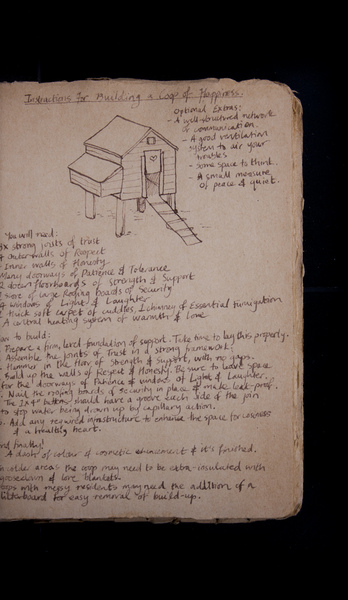 Instructions For Building a Coop of Happiness.
Optional Extras:
- A well-structured network
of communication.
- A good ventilation
system to air your
troubles
- Some space to think.
- A small measure
of peace & quiet.
You will need:
strong joists of trust
Outer walls of Respect
Inner walls of Honesty
Many doorways of Patience & Tolerance
floorboards of Strength & Support
of large Roofing Boards of Security
windows of Light & Laughter
thick soft carpet of cuddles, 1 chimney of Essential Fumigation
A central heating system of warmth & love
to build:
Prepare a firm, level foundation of support. Take time to lay this properly.
Assemble the joists of Trust in a strong framework;
Hammer in the floor of strength & support, with no gaps.
Build up the walls of Respect & Honesty. Be sure to leave space
for the doorways of Patience & windows of Light & Laughter.
Nail the roofing boards of security in place & make leak-proof.
The should have a groove each side of the join
to stop water being drawn up by capillary action.
Add any required infrastructure to enhance the space for
of a healthy heart.
finally!
A dash of colour & cosmetic enhancement & it's finished.
colder areas the coop may need to be extra-insulated with
of love blankets.
with messy residents may need the addition of a
for easy removal of build-up.